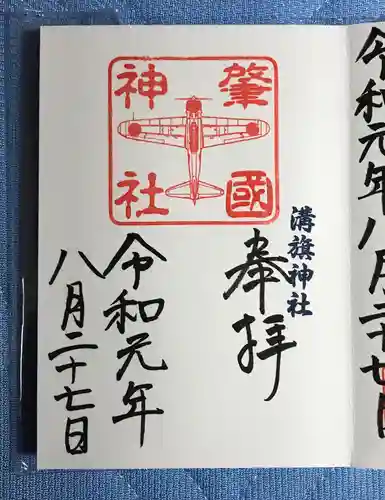 肇國
神社
溝旗神社
奉拝
令和元年
八月二十七日
令和元年八月二十七日